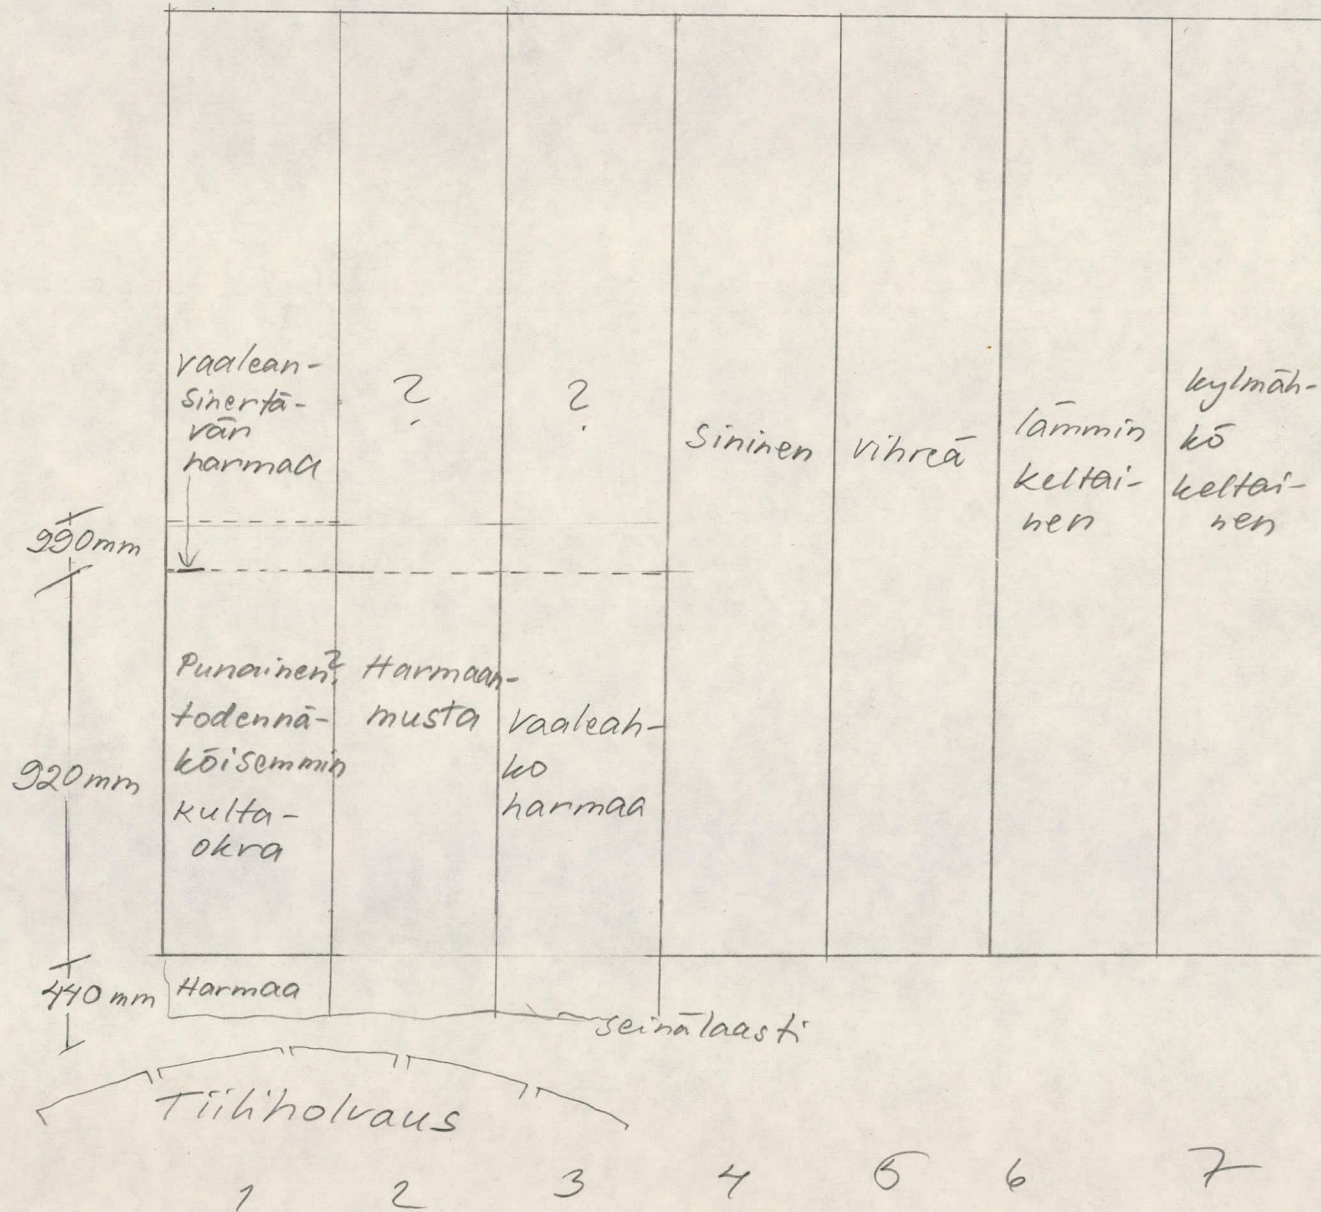 vaalean-
sinertä-
vän
harmaa
?
?
sininen
vihreä
lämmin
keltai-
nen
kylmäh-
kö
keltai-
nen
990mm
Punainen?
todennä-
köisemmin
kulta-
okra
Harmaan-
musta
vaaleah-
ko
harmaa
920mm
440mm
Harmaa
seinälaasti
Tiiliholvaus
1 2 3 4 5 6 7